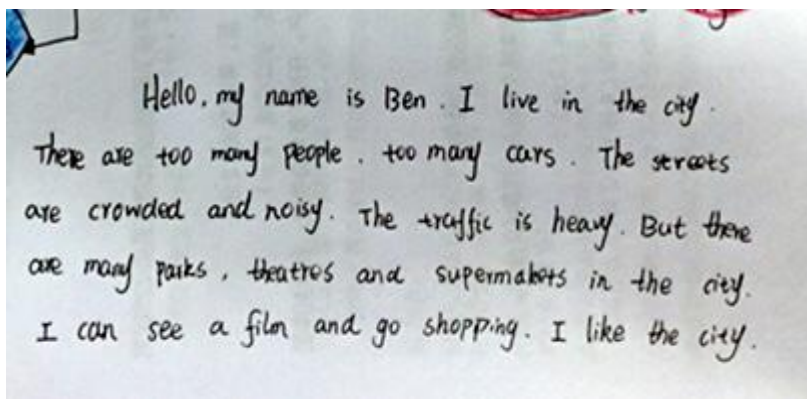 Hello, my name is Ben. I live in the city.
There are too many people, too many cars. The streets
are crowded and noisy. The traffic is heavy. But there
are many parks, theatres and supermakets in the city.
I can see a film and go shopping. I like the city.